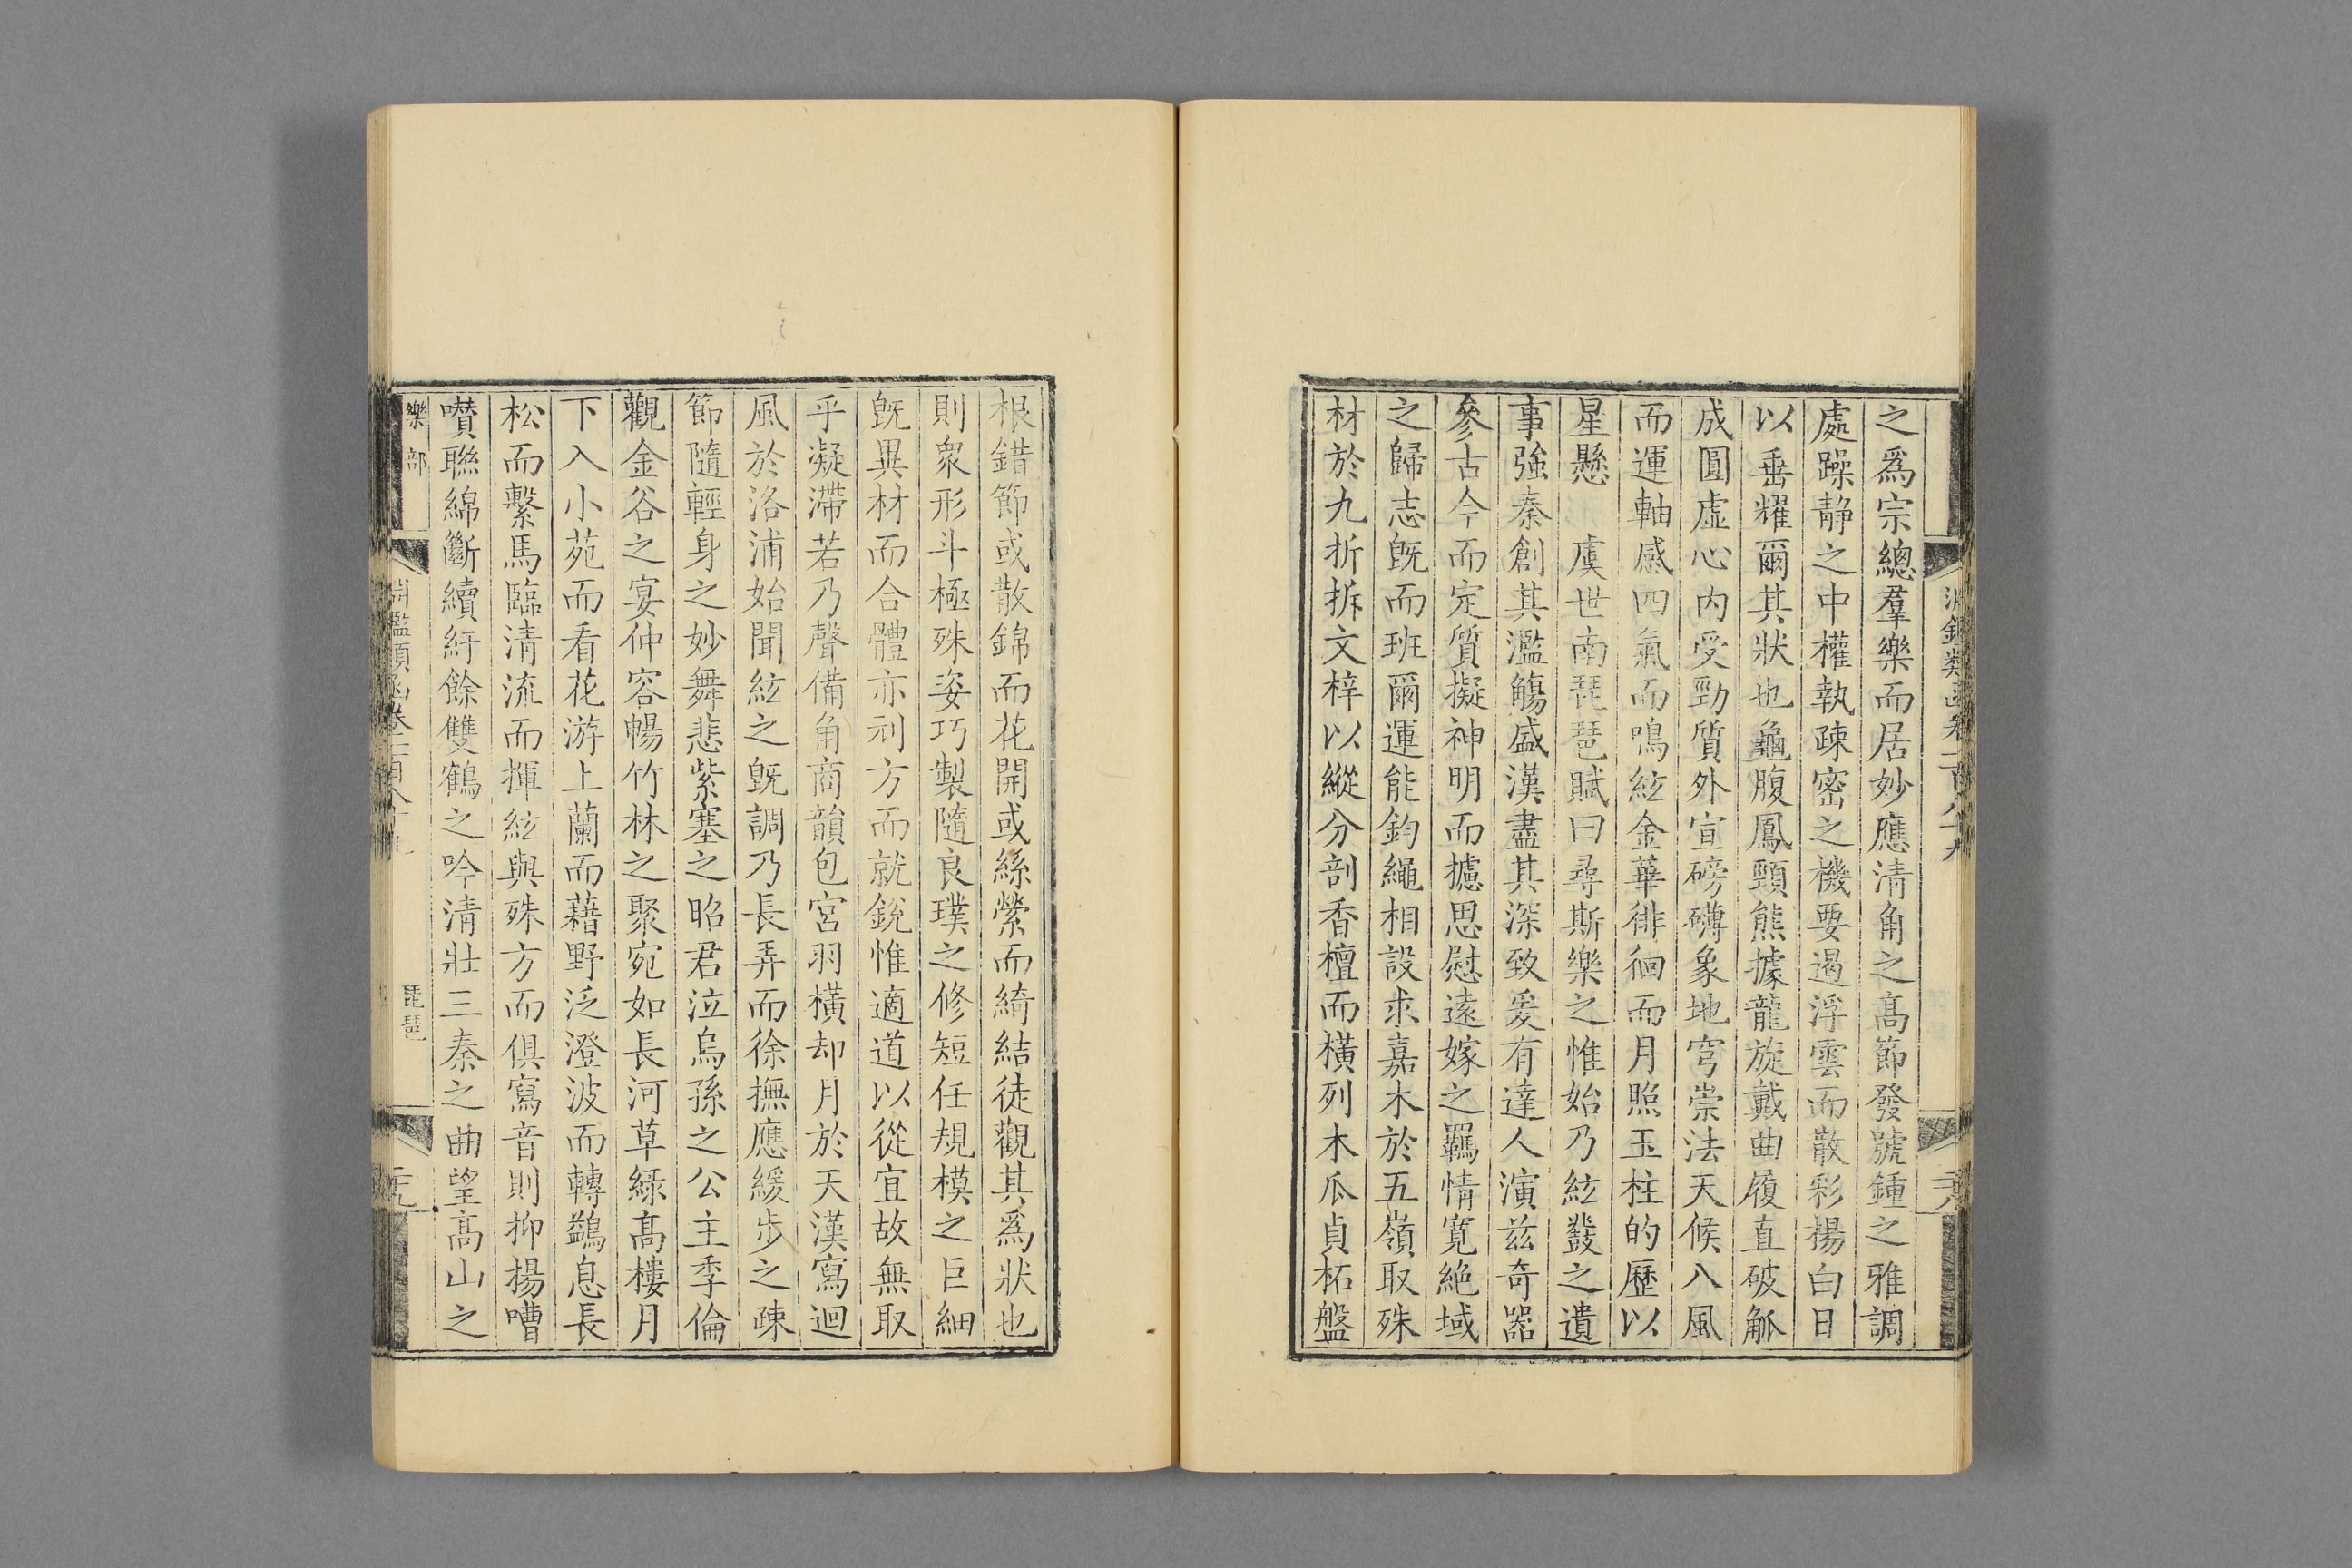 淵鑑類函卷一百八十九
二十八
之爲宗總羣樂而居妙應清角之髙節發號鍾之雅調
處躁静之中權執疎密之機要遏浮雲而散彩揚白日
以垂耀爾其狀也龜腹鳳頸熊據龍旋戴曲履直破觚
成圓虚心内受勁質外宣磅礴象地穹崇法天候八風
而運軸感四氣而鳴絃金華徘徊而月照玉柱的歷以
星懸　虞世南琵琶賦曰尋斯樂之惟始乃絃鼗之遺
事強秦創其濫觴盛漢盡其深致爰有達人演兹奇器
參古今而定質擬神明而攄思慰逺嫁之羈情寛絶域
之歸志旣而班爾運能鈞繩相設求嘉木於五嶺取殊
材於九折拆文梓以縱分剖香檀而橫列木瓜貞柘盤
根錯節或散錦而花開或絲縈而綺結徒觀其爲狀也
則衆形斗極殊姿巧製隨良璞之修短任規模之巨細
旣異材而合體亦利方而就銳惟適道以從宜故無取
乎凝滯若乃聲備角商韻包宮羽橫却月於天漢寫迴
風於洛浦始聞絃之旣調乃長弄而徐撫應緩步之疎
節隨輕身之妙舞悲紫塞之昭君泣烏孫之公主季倫
觀金谷之宴仲容暢竹林之聚宛如長河草緑髙樓月
下入小苑而看花游上蘭而藉野泛澄波而轉鷁息長
松而繫馬臨清流而揮絃與殊方而俱寫音則抑揚嘈
囋聯綿斷續紆餘雙鶴之吟清壯三秦之曲望髙山之
樂部
淵鑑類函卷一百八十九
琵琶
二十九